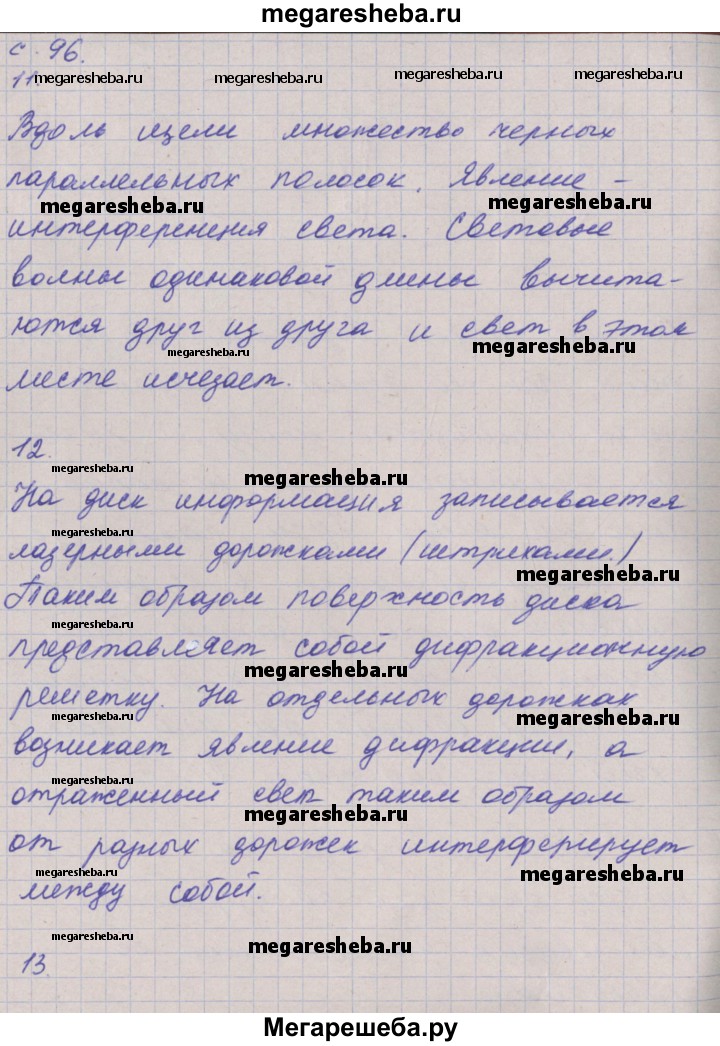 megaresheba.ru
с. 96.
11. megaresheba.ru megaresheba.ru megaresheba.ru megaresheba.ru
Вдоль щели множество черных
параллельных полосок. Явление -
megaresheba.ru megaresheba.ru megaresheba.ru
интерференция света. Световые
волны одинаковой длины вычита-
ются друг из друга и свет в этом
megaresheba.ru megaresheba.ru megaresheba.ru
месте исчезает.
12.
megaresheba.ru megaresheba.ru
На диск информация записывается
megaresheba.ru
лазерными дорожками (штрихами.)
megaresheba.ru
Таким образом поверхность диска
megaresheba.ru
представляет собой дифракционную
megaresheba.ru
решетку. На отдельных дорожках
megaresheba.ru
возникает явление дифракции, а
megaresheba.ru
отраженный свет таким образом
megaresheba.ru
от разных дорожек интерферирует
megaresheba.ru megaresheba.ru
между собой.
megaresheba.ru megaresheba.ru
13.
Мегарешеба.ру